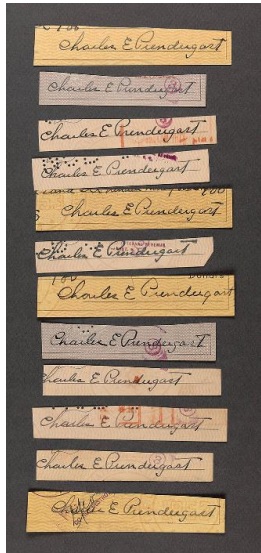 Charles E Prendergast
Charles E Prendergast
Charles E Prendergast
Charles E Prendergast
Charles E Prendergast
Charles E Prendergast
100
Dollars
Charles E Prendergast
Charles E Prendergast
Charles E Prendergast
Charles E Prendergast
Charles E Prendergast
Charles E Prendergast